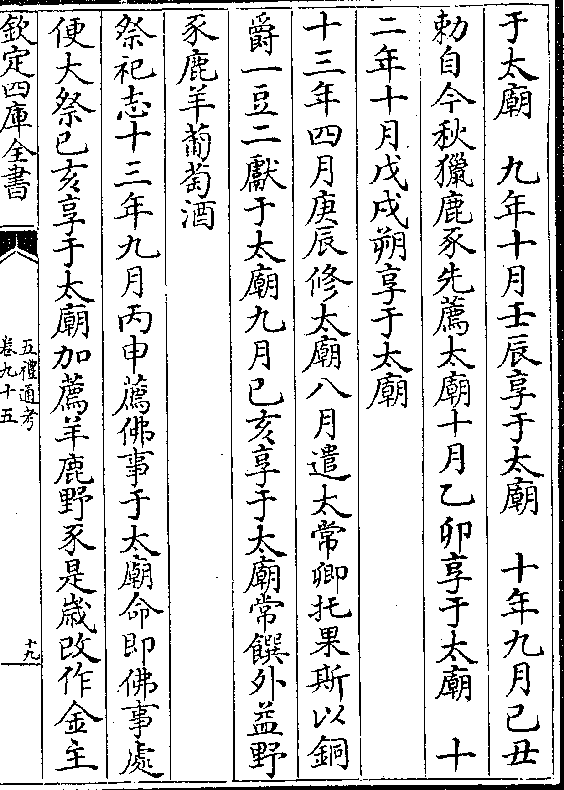 于太廟　九年十月壬辰享于太廟　十年九月己丑
勅自今秋獵鹿豕先薦太廟十月乙卯享于太廟　十
二年十月戊戌朔享于太廟
十三年四月庚辰修太廟八月遣太常卿托果斯以銅
爵一豆二獻于太廟九月已亥享于太廟常饌外益野
豕鹿羊葡萄酒
祭祀志十三年九月丙申薦佛事于太廟命即佛事處
便大祭已亥享于太廟加薦羊鹿野豕是歳改作金主
欽定四庫全書
五禮通考
卷九十五
十九